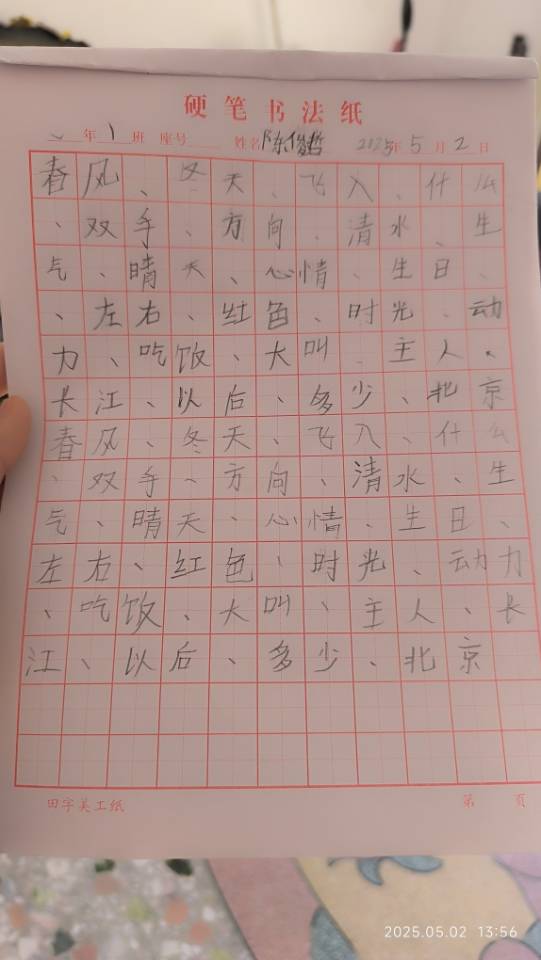 硬笔书法纸
年 1 班 座号 姓名 陈俊哲 2025年 5 月 2 日
春风、冬天、飞入、什么
、双手、方向、清水、生
气、晴天、心情、生日、
、左右、红色、时光、动
力、吃饭、大叫、主人、
长江、以后、多少、北京
春风、冬天、飞入、什么
、双手、方向、清水、生
气、晴天、心情、生日、
左右、红色、时光、动力
、吃饭、大叫、主人、长
江、以后、多少、北京
田字美工纸 第 页
2025.05.02 13:56